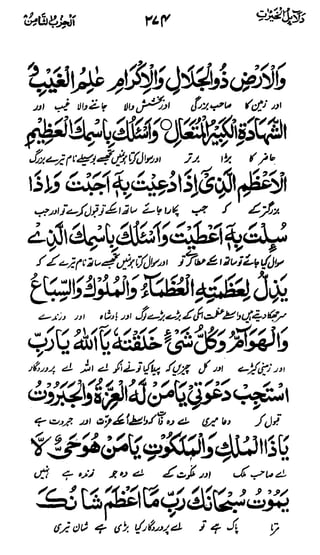 دلائل الخیرات ۲۷۴ الحزب الثامن
وَالْاَرْضِ ذُو الْجَلَالِ وَالْاِكْرَامِ عٰلِمُ الْغَيْبِ فِي
اور زمین کا صاحب بزرگی اور بخشش والا جاننے والا غیب اور
الشَّهَادَةِ الْكَبِيْرُ الْمُتَعَالُ وَاَسْئَلُكَ بِاسْمِكَ الْعَظِيْمِ
حاضر کا بڑا برتر اور سوال کرتا ہوں میں تجھسے بوسیلے نام تیرے بزرگ
الْاَعْظَمِ الَّذِيْ اِذَا دُعِيْتَ بِهٖ اَجَبْتَ وَاِذَا
بزرگتر کے کہ جب پکارا جائے ساتھ اسکے تو قبول کرے تو اور جب
سُئِلْتَ بِهٖ اَعْطَيْتَ وَاَسْئَلُكَ بِاسْمِكَ الَّذِيْ
سوال کیا جائے تو ساتھ اسکے عطا کرے تو اور سوال کرتا ہوں میں تجھسے ساتھ نام تیرے کے کہ
يَذِلُّ لِعَظَمَتِهِ الْعُظَمَاءُ وَالْمُلُوْكُ وَالسِّبَاعُ
واسطے عظمت اسکی کے بڑے بڑے لوگ اور بادشاہ اور درندے
وَالْهَوَامُّ وَكُلُّ شَيْءٍ خَلَقْتَهٗ يَا اَللهُ يَا رَبِّ
اور زمینی کیڑے اور کل چیزیں کہ پیدا کیا تونے انکو اے اللہ اے پروردگار
اسْتَجِبْ دَعْوَتِيْ يَا مَنْ لَهُ الْعِزَّةُ وَالْجَبَرُوْتُ
قبول کر دعا میری اے وہ ذات کہ واسطے اسکے عزت اور جبروت ہے
يَا ذَا الْمُلْكِ وَالْمَلَكُوْتِ يَا مَنْ هُوَ حَيٌّ لَّا
اے صاحب ملک اور ملکوت کے اے وہ جو زندہ ہے نہیں
يَمُوْتُ سُبْحَانَكَ رَبِّ مَا اَعْظَمَ شَانَكَ
مرتا پاک ہے تو اے پروردگار کیا بڑی ہے شان تیری